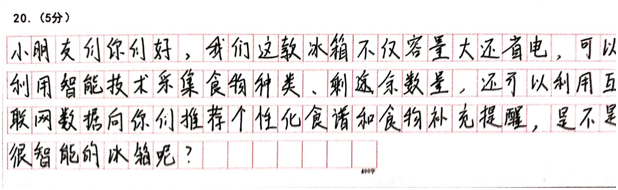 20.（5分）
小朋友们你们好，我们这款冰箱不仅容量大还省电，可以
利用智能技术采集食物种类、剩途余数量，还可以利用互
联网数据向你们推荐个性化食谱和食物补充提醒，是不是
很智能的冰箱呢？